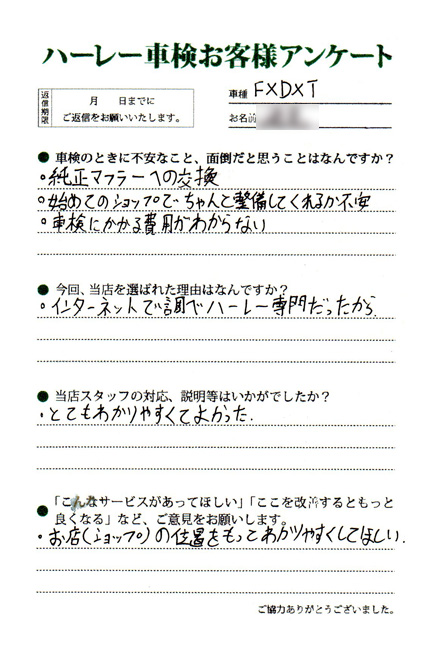 ハーレー車検お客様アンケート
返信期限
月　　日までに
ご返信をお願いいたします。
車種 FXDXT
お名前
● 車検のときに不安なこと、面倒だと思うことはなんですか？
・純正マフラーへの交換
・始めてのショップでちゃんと整備してくれるか不安
・車検にかかる費用がわからない
● 今回、当店を選ばれた理由はなんですか？
・インターネットで調べハーレー専門だったから.
● 当店スタッフの対応、説明等はいかがでしたか？
・とてもわかりやすくてよかった.
● 「こんなサービスがあってほしい」「ここを改善するともっと
良くなる」など、ご意見をお願いします。
・お店(ショップ)の位置をもってわかりやすくしてほしい.
ご協力ありがとうございました。